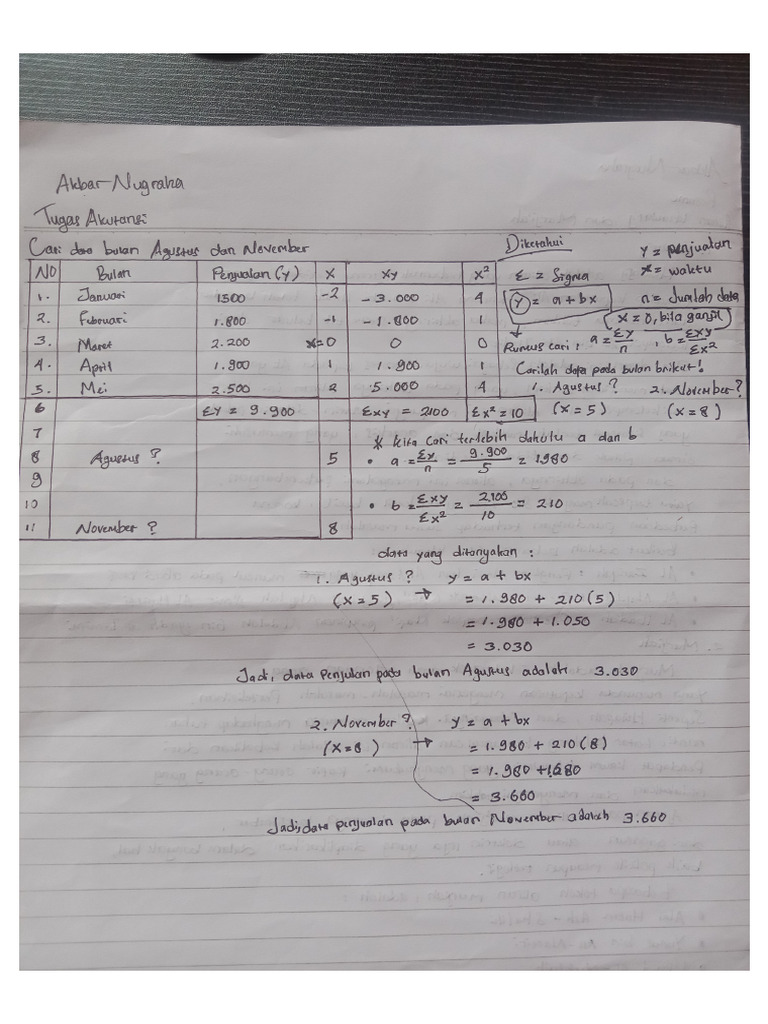 Akbar Nugraha
Tugas Akutansi
Cari data bulan Agustus dan November
Diketahui
Y = penjualan
Σ = Sigma
X = waktu
Y = a + bx
n = Jumlah data
X = 0, bila ganjil
Rumus cari : a = Σy/n , b = Σxy/Σx²
Carilah data pada bulan brikut!
1. Agustus ? 2. November ?
(X = 5) (X = 8)
NO Bulan Penjualan (Y) X XY X²
1. Januari 1500 -2 -3.000 4
2. Februari 1.800 -1 -1.800 1
3. Maret 2.200 X=0 0 0
4. April 1.900 1 1.900 1
5. Mei 2.500 2 5.000 4
6 ΣY = 9.900 Σxy = 2100 Σx² = 10
7
8 Agustus ? 5
9
10
11 November ? 8
* kita cari terlebih dahulu a dan b
• a = Σy/n = 9.900/5 = 1980
• b = Σxy/Σx² = 2.100/10 = 210
data yang ditanyakan :
1. Agustus ? y = a + bx
(X = 5) → = 1.980 + 210 (5)
= 1.980 + 1.050
= 3.030
Jadi, data Penjulan pada bulan Agustus adalah 3.030
2. November ? y = a + bx
(X = 8) → = 1.980 + 210 (8)
= 1.980 + 1.680
= 3.660
Jadi, data penjualan pada bulan November adalah 3.660